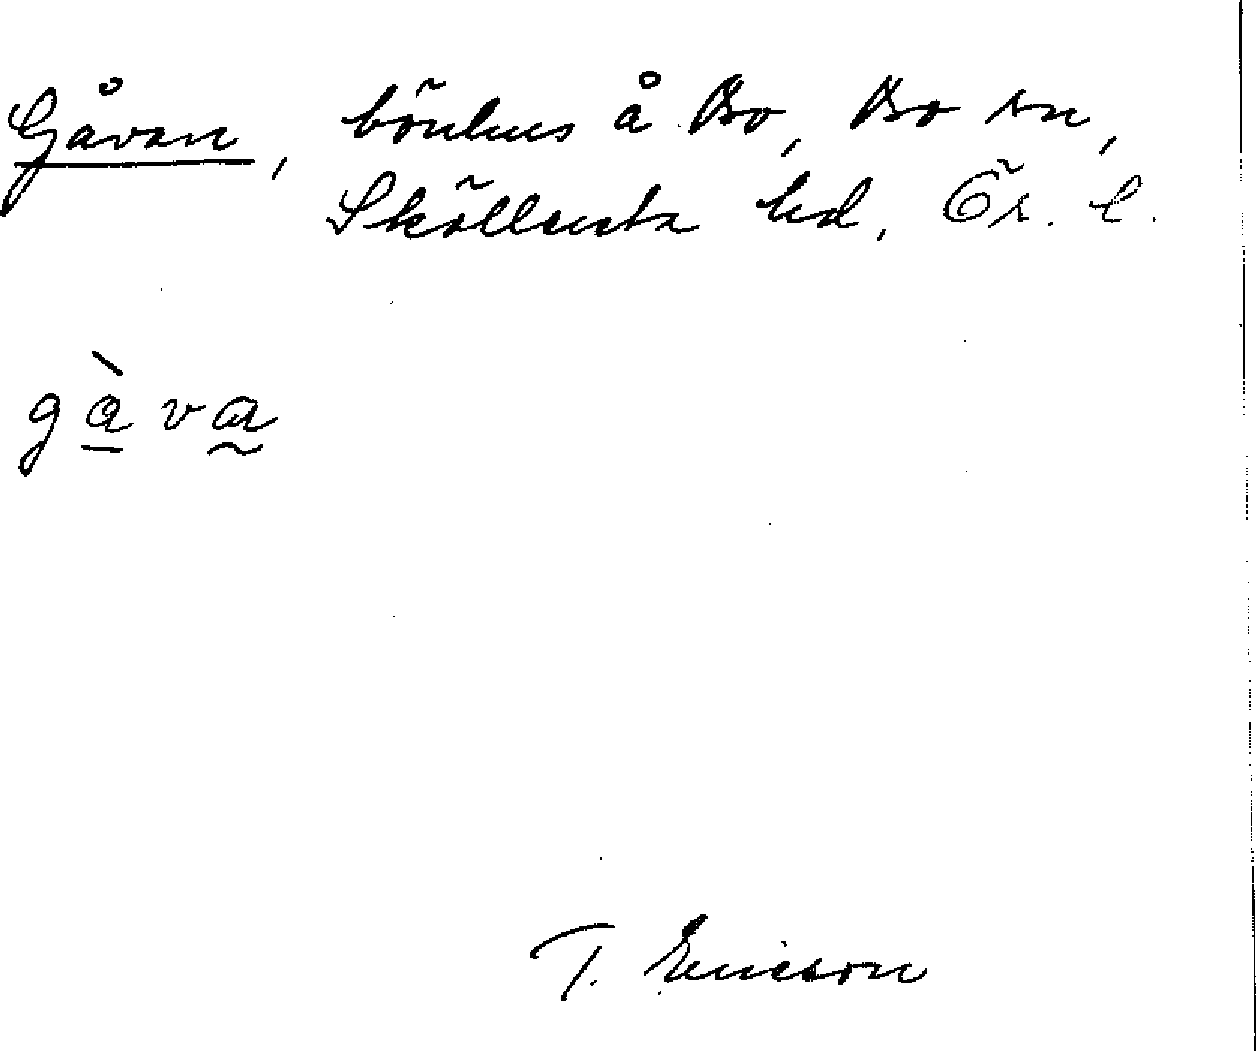 Gåvan, bönhus å Bo, Bo sn,
Sköllersta hd, Ör. l.
gåva
T. Ericson